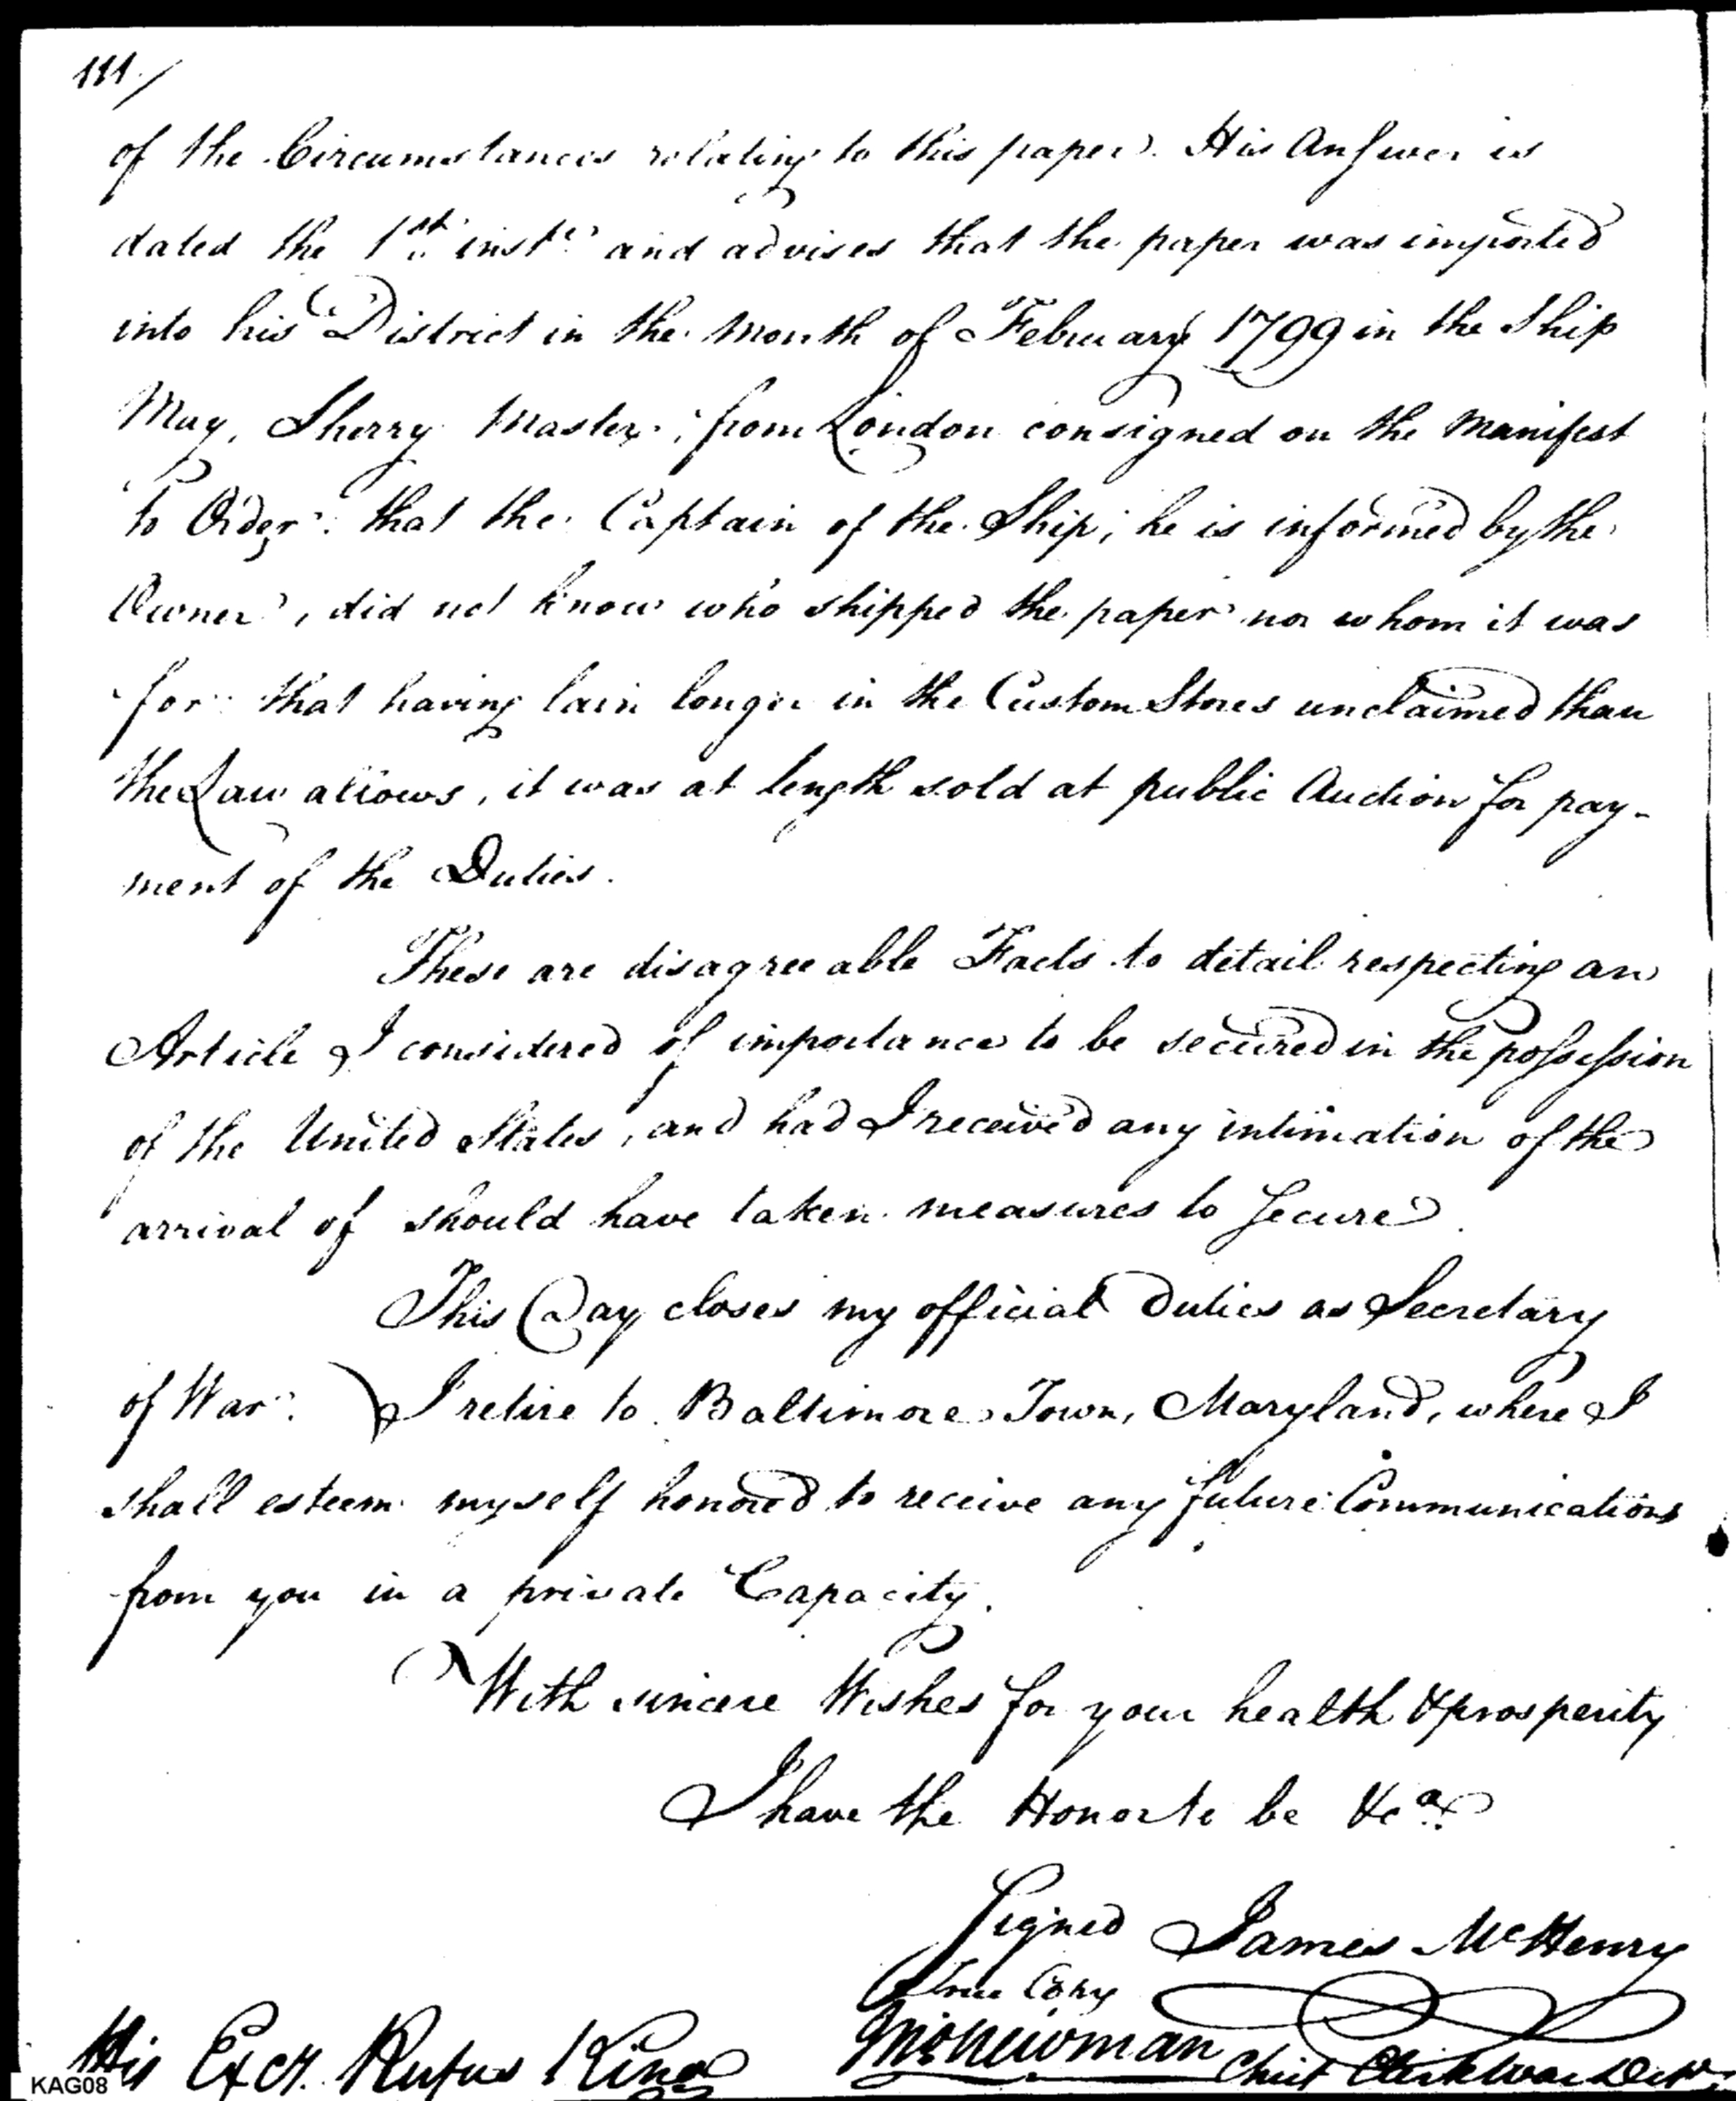 111./
of the Circumstances relating to this paper. His Answer is
dated the 1st inst. and advises that the paper was imported
into his District in the Month of February 1799 in the Ship
May, Sherry Master, from London consigned on the Manifest
to Order: that the Captain of the Ship, he is informed by the
Owner, did not know who shipped the paper nor whom it was
for: that having lain longer in the Custom Stores unclaimed than
the Law allows, it was at length sold at public Auction for pay-
ment of the Duties.
These are disagreeable Facts to detail respecting an
Article I considered of importance to be secured in the possession
of the United States, and had I received any intimation of the
arrival of should have taken measures to Secure.
This Day closes my official Duties as Secretary
of War. I retire to Baltimore Town, Maryland, where I
shall esteem myself honored to receive any future Communications
from you in a private Capacity.
With sincere Wishes for your health & prosperity
I have the Honor to be &ca.
Signed James McHenry
True Copy
Newman Chief Clerk War Dept.
His Excy. Rufus King
KAG08